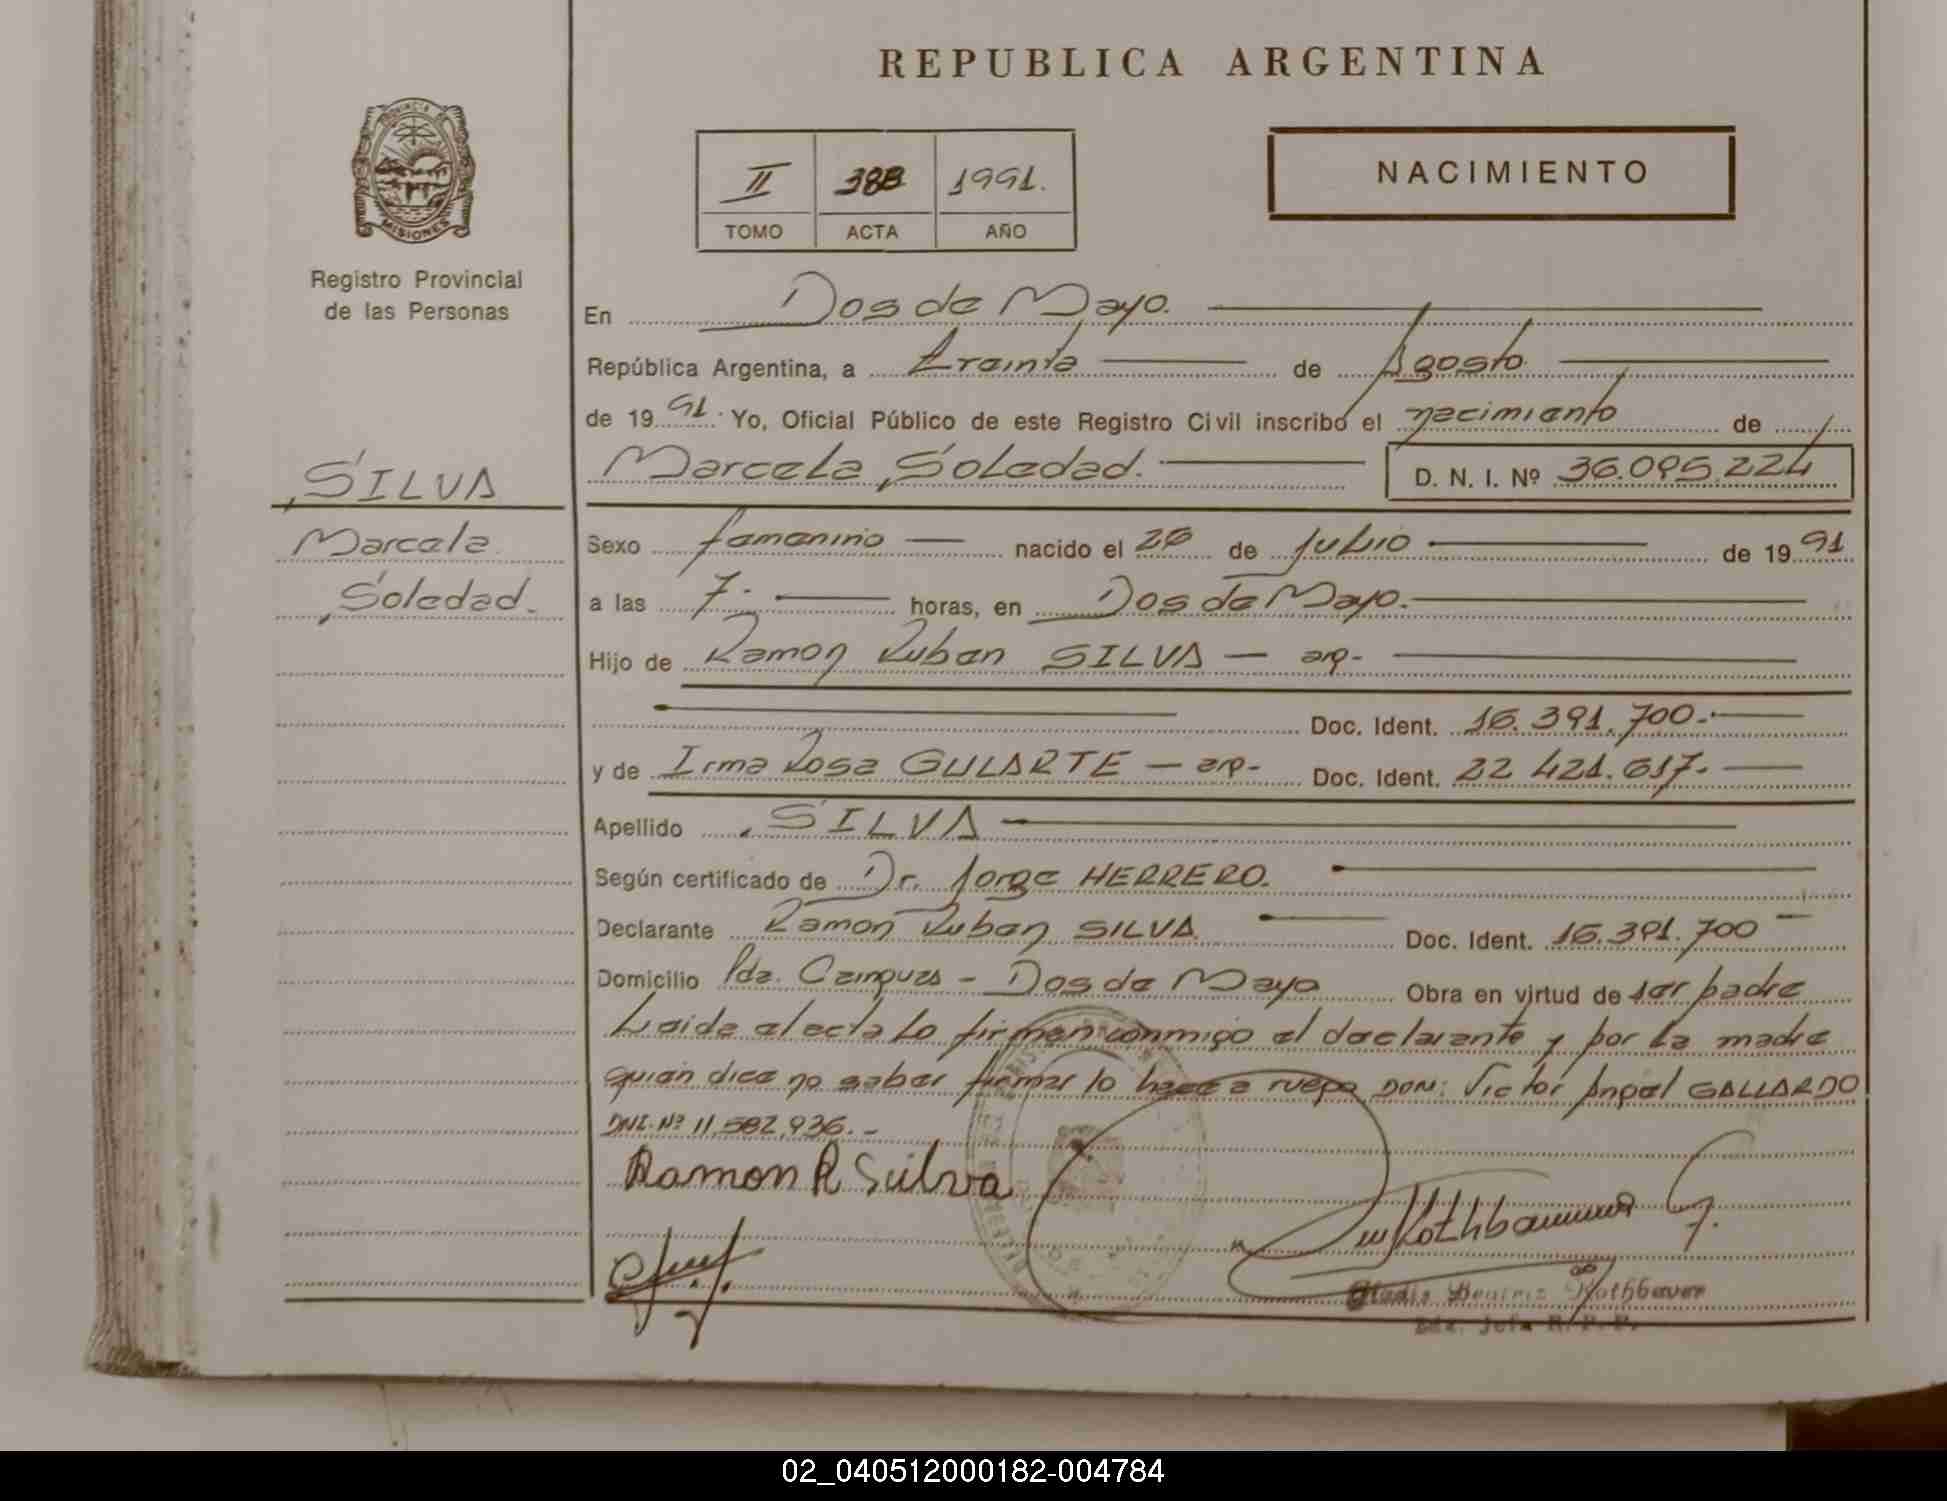 REPUBLICA ARGENTINA
PROVINCIA DE
MISIONES
Registro Provincial
de las Personas
II 388 1991.
TOMO ACTA AÑO
NACIMIENTO
En Dos de Mayo.
República Argentina, a treinta de Agosto
de 1991. Yo, Oficial Público de este Registro Civil inscribo el nacimiento de
Marcela, Soledad. D. N. I. Nº 36.095.224
SILVA
Marcela
Soledad.
Sexo femenino nacido el 28 de Julio de 1991
a las 7. horas, en Dos de Mayo.
Hijo de Ramon Ruben SILVA - arg-
Doc. Ident. 16.391.700.
y de Irma Rosa GULARTE - arg- Doc. Ident. 22 421.617.
Apellido SILVA
Según certificado de Dr. Jorge HERRERO.
Declarante Ramon Ruben SILVA Doc. Ident. 16.391.700
Domicilio Pda. Cainguas - Dos de Mayo Obra en virtud de ser padre
Leida el acta lo firman conmigo el declarante y por la madre
quien dice no saber firmar lo hace a ruego DON: Victor Angel GALLARDO
DNI. Nº 11.582.936.-
Ramon R Suilva
Gladis Beatriz Rothbauer
Jefa R.P.P.
02_040512000182-004784